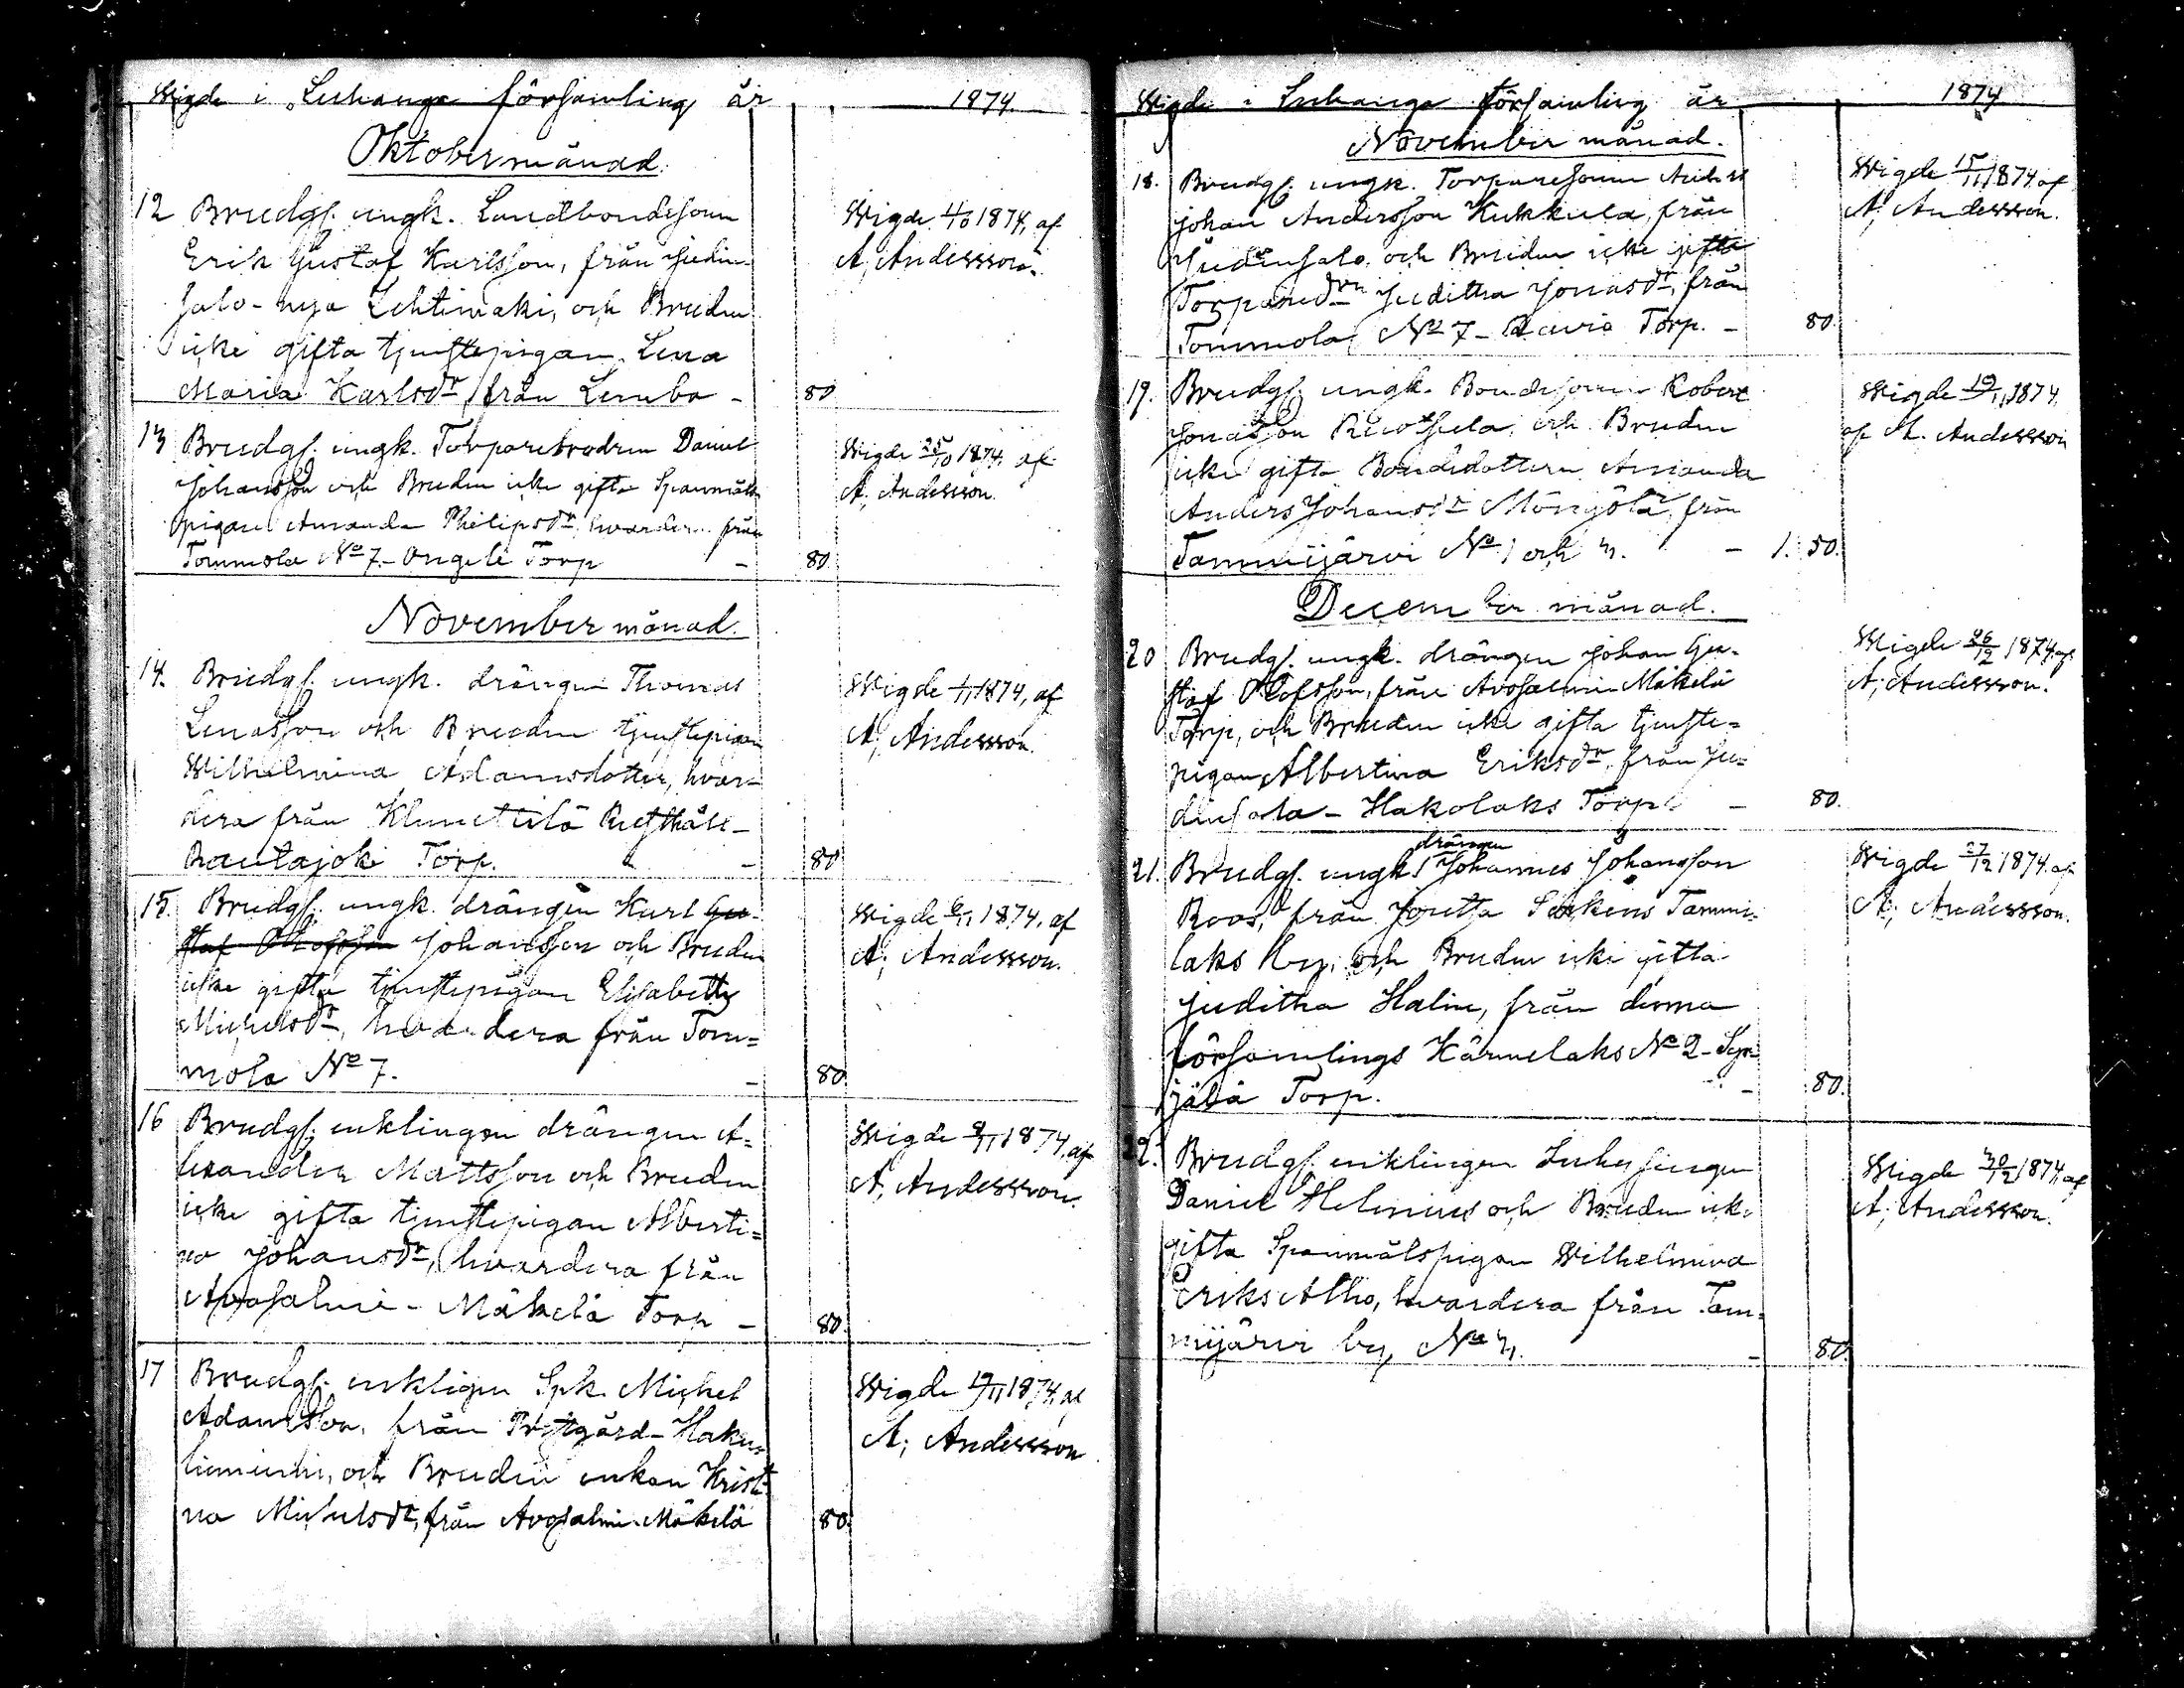 Wigde i Luhanga församling år 1874.
Oktober månad.
12 Brudg. ungk. Landbondesonen
Erik Gustaf Karlsson, från Judin-
salo - nya Lehtimäki, och Bruden
icke gifta tjenstepigan Lena
Maria Karlsdr, från Lembo - 80
Wigde 4/10 1874, af
A; Andersson.
13 Brudg. ungk. Torparebrodren Daniel
Johansson och Bruden icke gifta Spanmåls
pigan Amanda Philipsdr, hvardera från
Tommola No 7. - Ongeli Torp - 80.
Wigde 25/10 1874, af
A; Andersson.
November månad.
14. Brudg. ungk. drängen Thomas
Enasson och Bruden tjenstepigan
Wilhelmina Adamsdotter, hvar-
dera från Klemettilä
Rautajoki Torp. - 80
Wigde 1/11 1874, af
A; Andersson.
15. Brudg. ungk. drängen Karl Gu-
staf Olofsson Johansson och Bruden
icke gifta tjenstepigan Elisabeth
Michelsdr, hvardera från Tom=
mola No 7. - 80.
Wigde 6/11 1874, af
A; Andersson.
16 Brudg. enklingen drängen A=
lexander Mattsson och Bruden
icke gifta tjenstepigan Alberti=
na Johansdr, hvardera från
Avosalmi - Mäkelä Torp - 80.
Wigde 8/11 1874, af
A; Andersson.
17 Brudg. enklingen Spk. Michel
Adamsson, från Prestgård - Haku=
och Bruden enkan Kristi
na Michelsdr, från Avosalmi Mäkelä 80.
Wigde 19/11 1874, af
A; Andersson
Wigde i Luhanga församling år 1874
November månad.
18. Brudg. ungk. Torparesonen Anders
Johan Andersson Kukkula, från
Judinsalo och Bruden icke gifta
Torparedrn Juditha Jonasdr, från
Tommola No 7 - Torp. - 80.
Wigde 15/11 1874 af
A; Andersson.
19. Brudg. ungk. Bondesonen Robert
Jonasson Ruotsula och Bruden
icke gifta Bondedottern Amanda
Anders Johansdr från
Tammijärvi No 1 och 3. - 1. 50.
Wigde 19/11 1874.
af A. Andersson
December månad.
20 Brudg. ungk. drängen Johan Gu-
staf Olofsson, från Avosalmi Mäkelä
Torp, och Bruden icke gifta tjenste=
pigan Albertina Eriksdr, från Ju=
dinsalo - Hakolaks Torp. - 80.
Wigde 26/12 1874. af
A; Andersson.
drängen
21. Brudg. ungk. Johannes Johansson
Roos, från Joutsa Tammi-
laks by, och Bruden icke gifta
Juditha Halin, från denna
församlings Kärnelaks No 2 - Syr-
jälä Torp. - 80.
Wigde 27/12 1874. af
A; Andersson.
22. Brudg. enklingen
Daniel Helenius och Bruden icke
gifta Spanmålspigan Wilhelmina
Eriks Alho, hvardera från Tam=
mijärvi by, No 3. - 80.
Wigde 30/12 1874, af
A; Andersson.